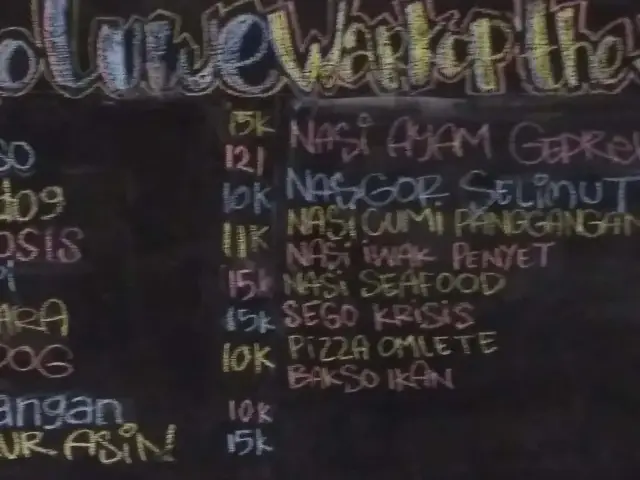 luwe Warkop the
15K
SO 121
dog 10K
OSIS 11K
PI 15K
ARA 15K
DOG 10K
angan 10K
UR ASIN 15K
NASI AYAM GEPRE
NASGOR SELIMUT
NASI CUMI PANGGANGAN
NASI IWAK PENYET
NASI SEAFOOD
SEGO KRISIS
PIZZA OMLETE
BAKSO IKAN